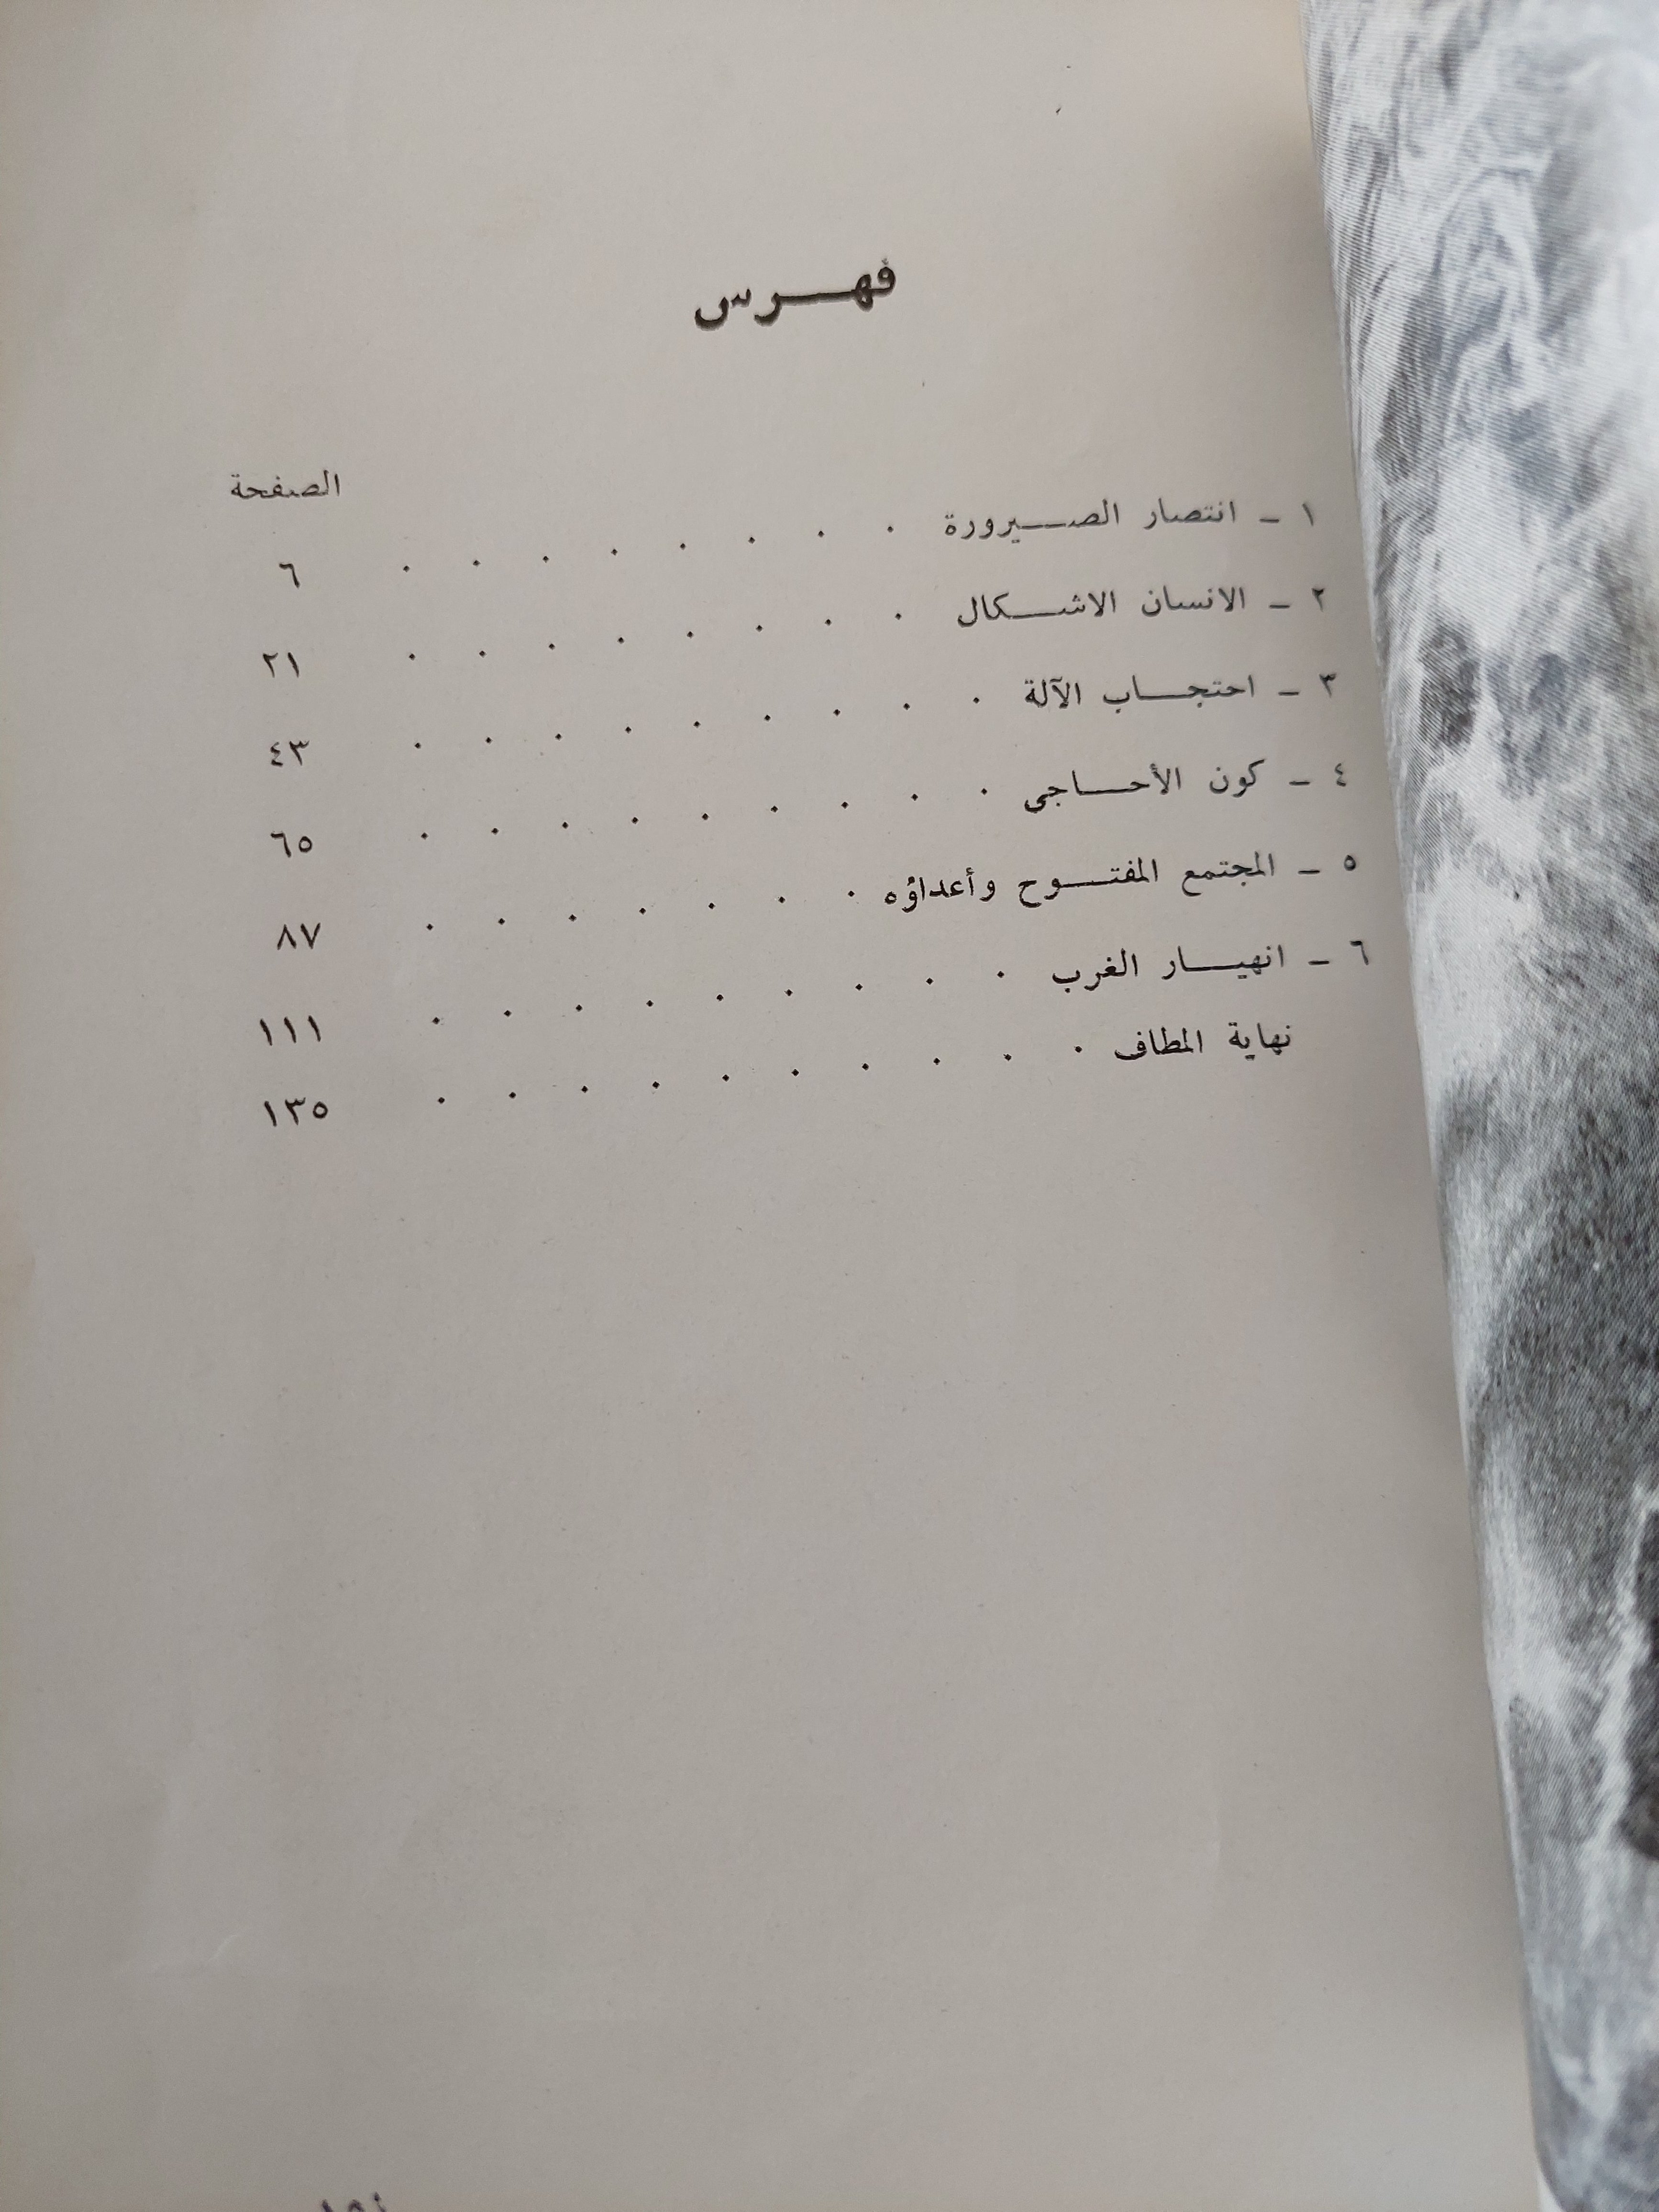 فهرس
الصفحة
١ - انتصار الصيرورة . . . . . . . . ٦
٢ - الانسان الاشكال . . . . . . . . ٢١
٣ - احتجاب الآلة . . . . . . . . . ٤٣
٤ - كون الأحاجى . . . . . . . . . ٦٥
٥ - المجتمع المفتوح وأعداؤه . . . . . . . ٨٧
٦ - انهيار الغرب . . . . . . . . . ١١١
نهاية المطاف . . . . . . . . . . ١٣٥